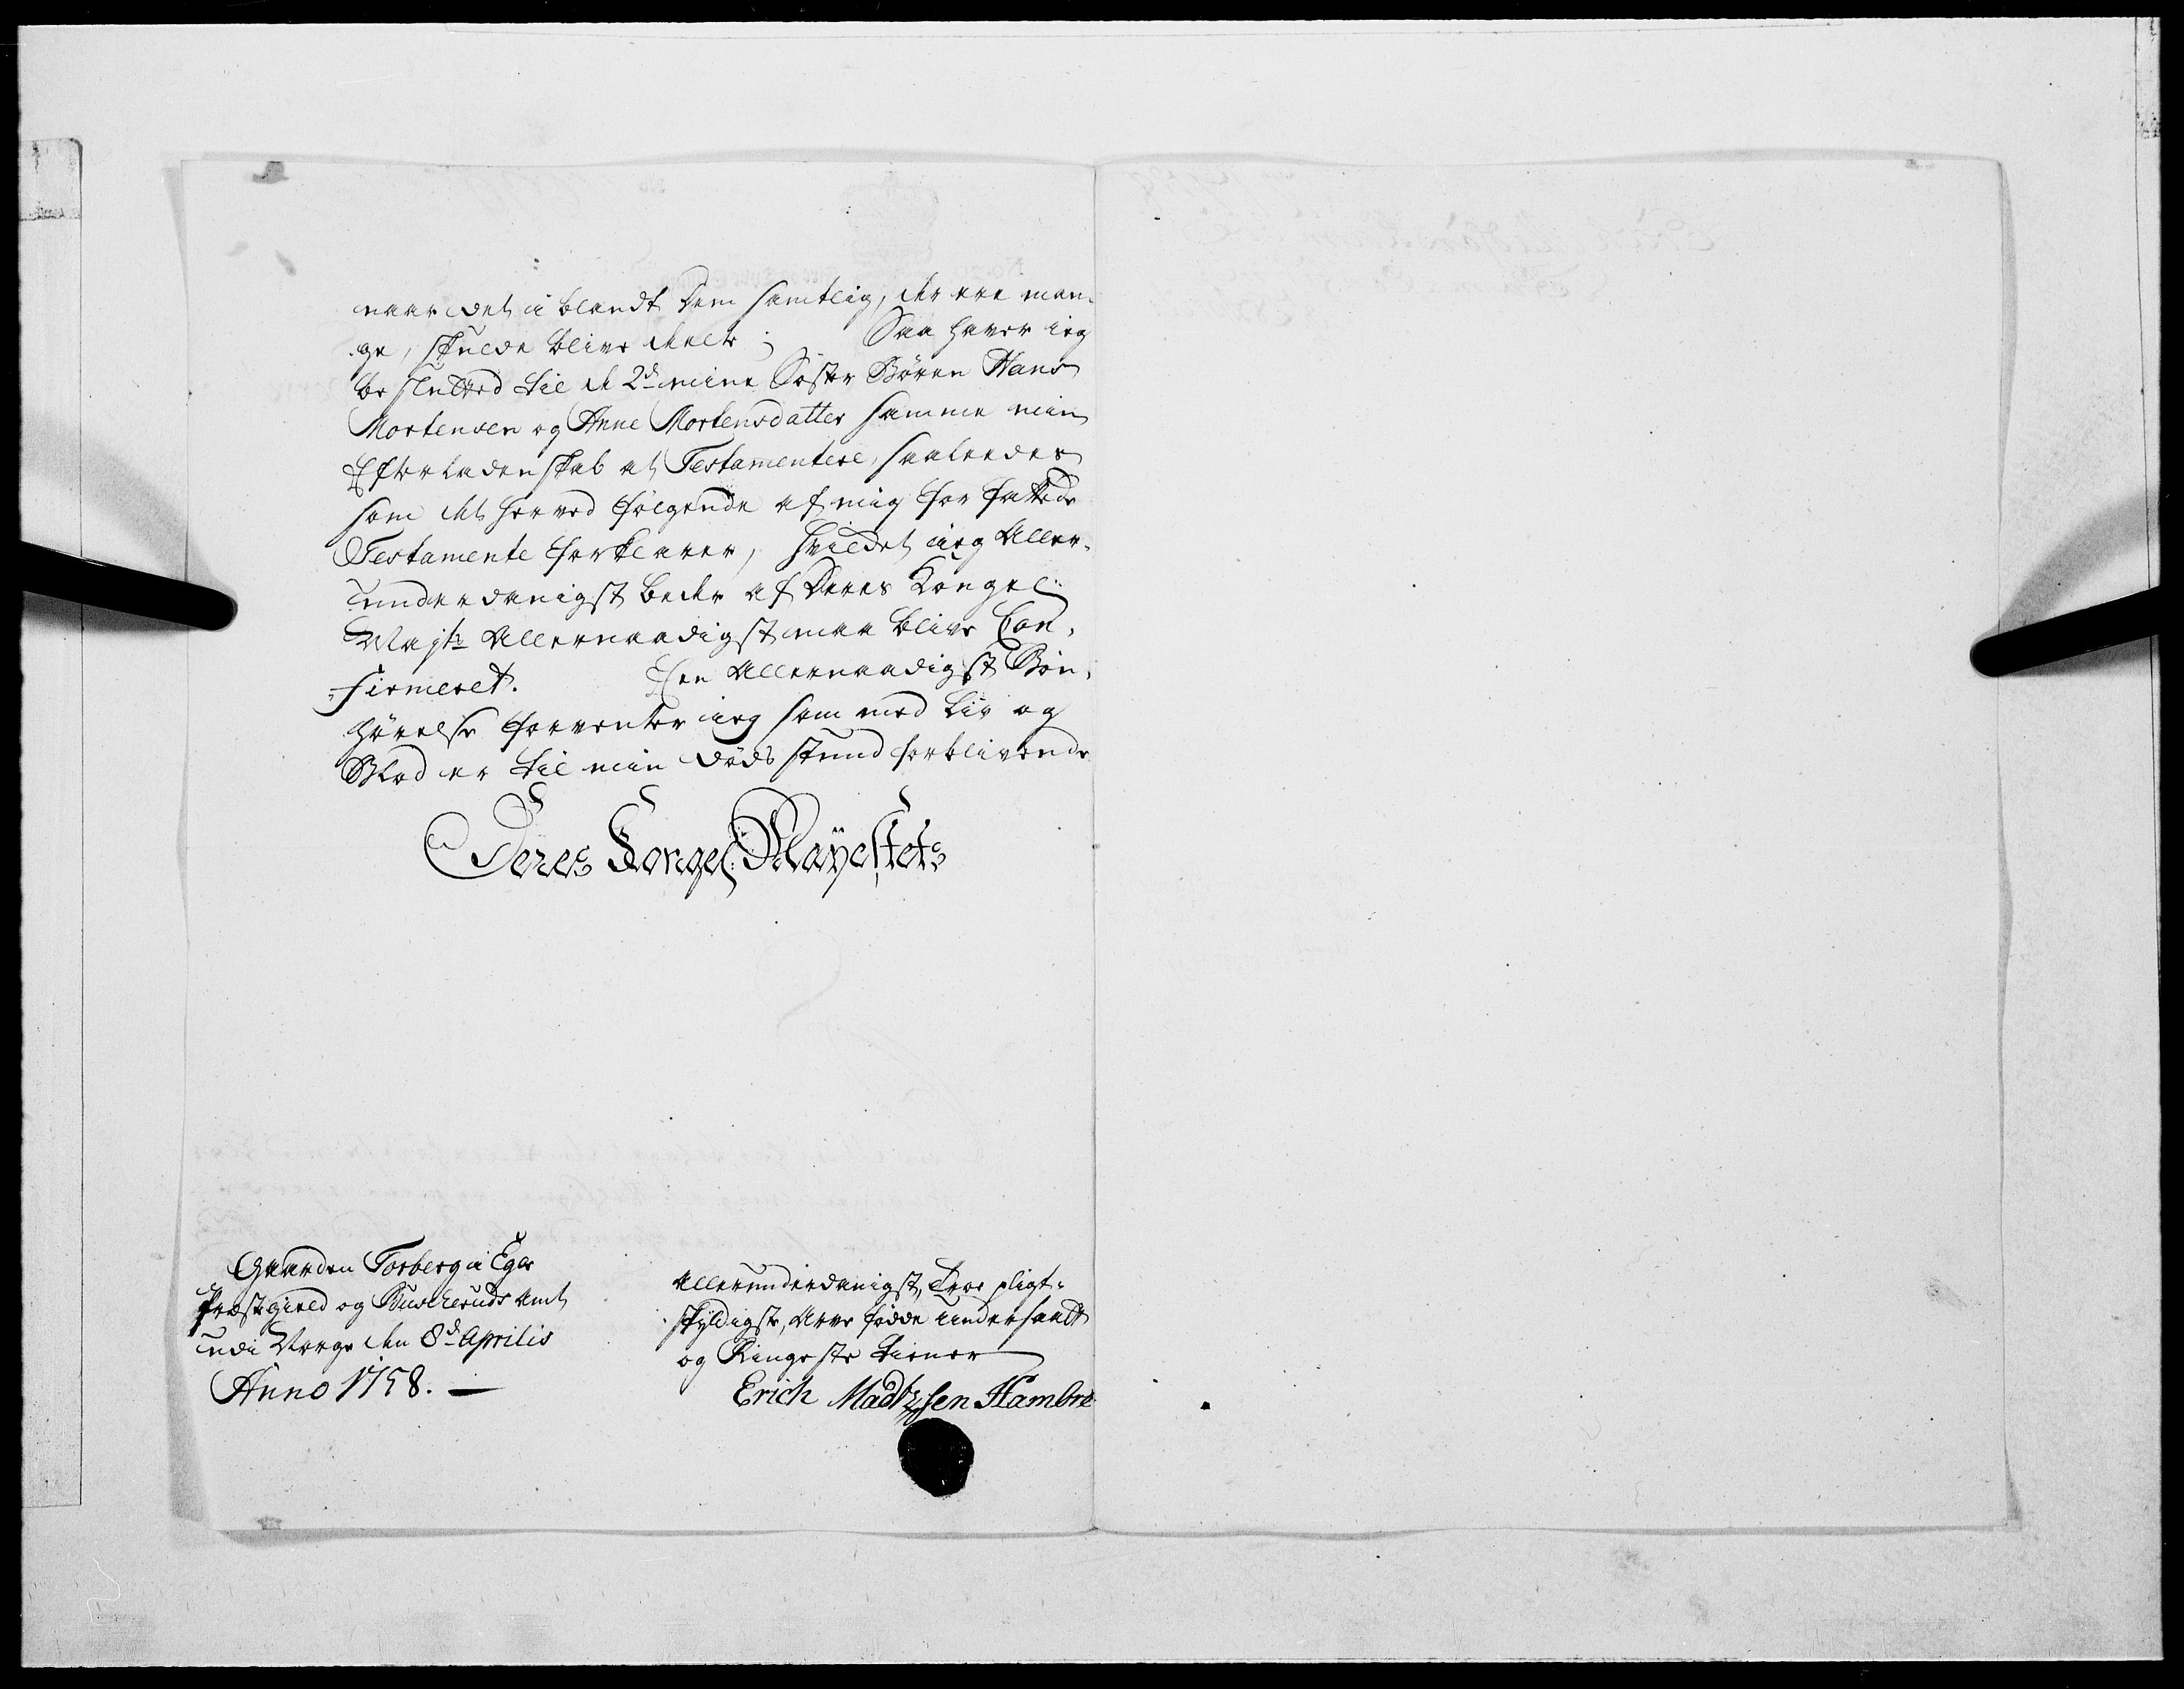 naar det i blandt Dem samtlig, der ere man-
ge, skulde blive deelt; Saa haver ieg
beslutted til de 2de mine Søster Børen Hans
Mortensen og Anne Mortensdatter samme min
Efterladenskab at Testamentere, saaledes
som det herved følgende af mig forfattede
Testamente forklarer, hvildet ieg Aller-
underdanigst beder af Deres Kongel:
Majts Allernaadigst maa blive Con-
firmeret. Een Allernaadigst Bøn-
hørelse forventer ieg som med Liv og
Blod er til min døds stund forblivende
Deres Kongel: Mayestets
Gaarden Torberg i Eger
Præstegield og Buscheruds Amt
udi Norge den 8de Aprilis
Anno 1758. —
Allerunderdanigst, Troe pligt-
skyldigste, Arve fødde undersaatt
og Ringeste tiener
Erich Madtzsen Hambre